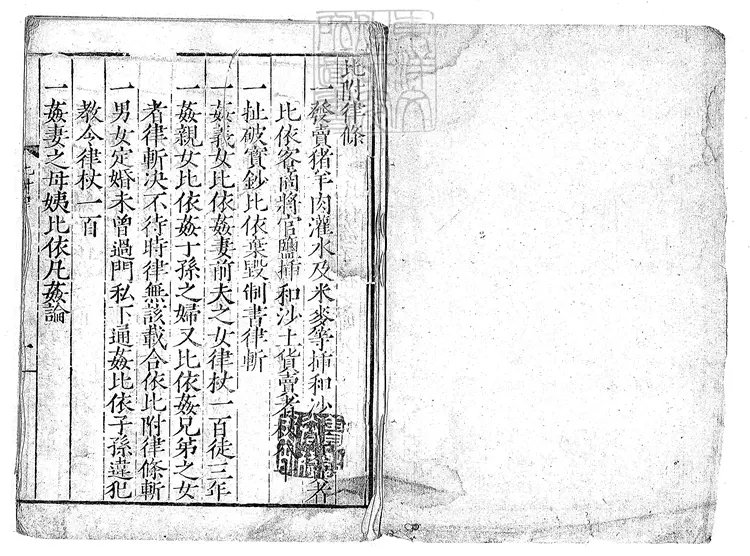 比附律條
一發賣猪羊肉灌水及米麥等插和沙土貨賣者
比依客商將官鹽插和沙土貨賣者杖八十
一扯破寳鈔比依棄毀制書律斬
一姦義女比依姦妻前夫之女律杖一百徒三年
一姦親女比依姦子孫之婦又比依姦兄弟之女
者律斬决不待時律無該載合依比附律條斬
一男女定婚未曾過門私下通姦比依子孫違犯
教令律杖一百
一姦妻之母姨比依凡姦論